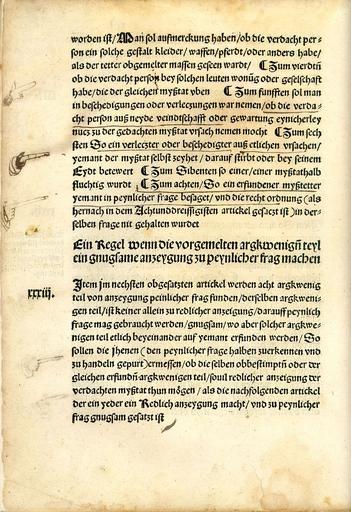 worden ist/ Man sol aufmerckung haben/ ob die verdacht per-
son ein solche gestalt kleider/ waffen/ pferdt/ oder anders habe/
als der tetter obgemelter massen geseen wardt/ ☾ Zum vierdtñ
ob die verdacht person bey solchen leuten wonũg oder geselschafft
habe/ die der gleichen myßtat vben ☾ Zum funfften sol man
in beschedigungen oder verletzungen war nemen/ ob die verda-
cht person auß neyde veindtschafft oder gewartung eynicherley
nutz zu der gedachten myßtat vrsach nemen mocht ☾ Zum sech
sten So ein verletzter oder beschedigter auß etlichen vrsachen/
yemant der myßtat selbst zeyhet/ darauf stirbt oder bey seinem
Eydt betewert ☾ Zum Sibenten so einer/ einer myßtathalb
fluchtig wurdt ☾ Zum achten/ So ein erfundener myßtetter
yemant in peynlicher frage besaget/ vnd die recht ordnung (als
hernach in dem Achtunddreissigisten artickel gesatzt ist) in der-
selben frage nit gehalten wurdet
Ein Regel wenn die vorgemelten argkwenigñ teyl
ein gnugsame anzeygung zu peynlicher frag machen
xxxiij. Item jm nechsten obgesatzten artickel werden acht argkwenig
teil von anzeygung peinlicher frag funden/ derselben argkweni-
gen teil/ ist keiner allein zu redlicher anzeigung/ darauff peynlich
frage mag gebraucht werden/ gnugsam/ wo aber solcher argkwe-
nigen teil etlich beyeinander auf yemant erfunden werden/ So
sollen die jhenen (den peynlicher frage halben zuerkennen vnd
zu handeln gepurt) ermessen/ ob die selben obbestimptñ oder der
gleichen erfundñ argkwenigen teil/ souil redlicher anzeigung der
verdachten myßtat thun mögen/ als die nachfolgenden artickel
der ein yeder ein Redlich anzeygung macht/ vnd zu peynlicher
frag gnugsam gesatzt ist